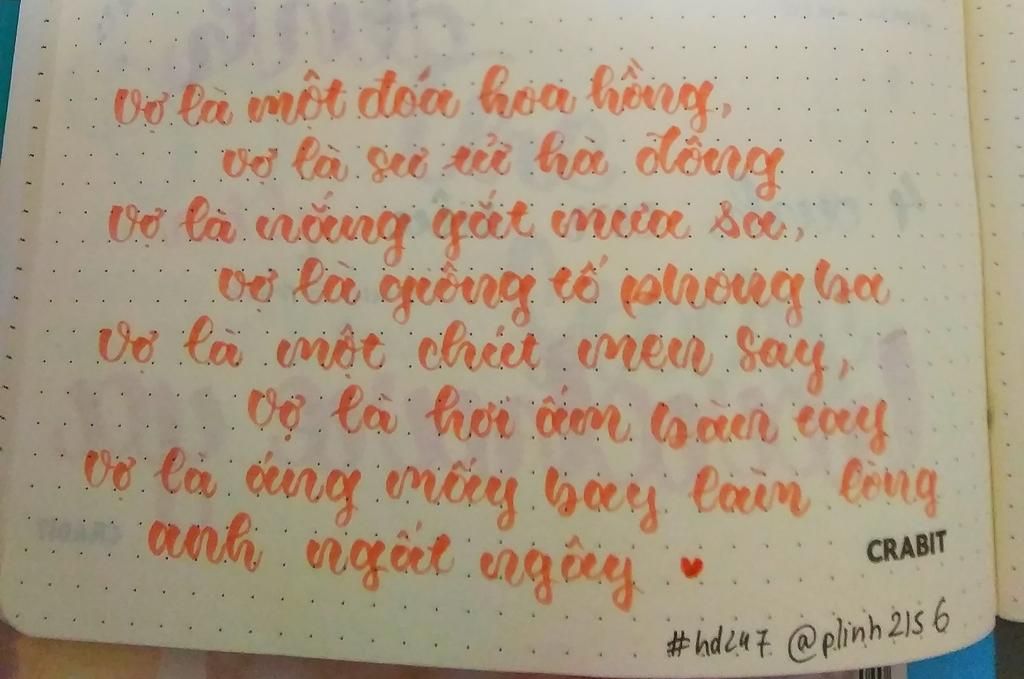 vợ là một đoá hoa hồng,
vợ là sư tử hà đông
vợ là nắng gắt mưa sa,
vợ là giông tố phong ba
vợ là một chút men say,
vợ là hơi ấm bàn tay
vợ là áng mấy bay làm lòng
anh ngất ngây
CRABIT
#hd247 @plinh2156